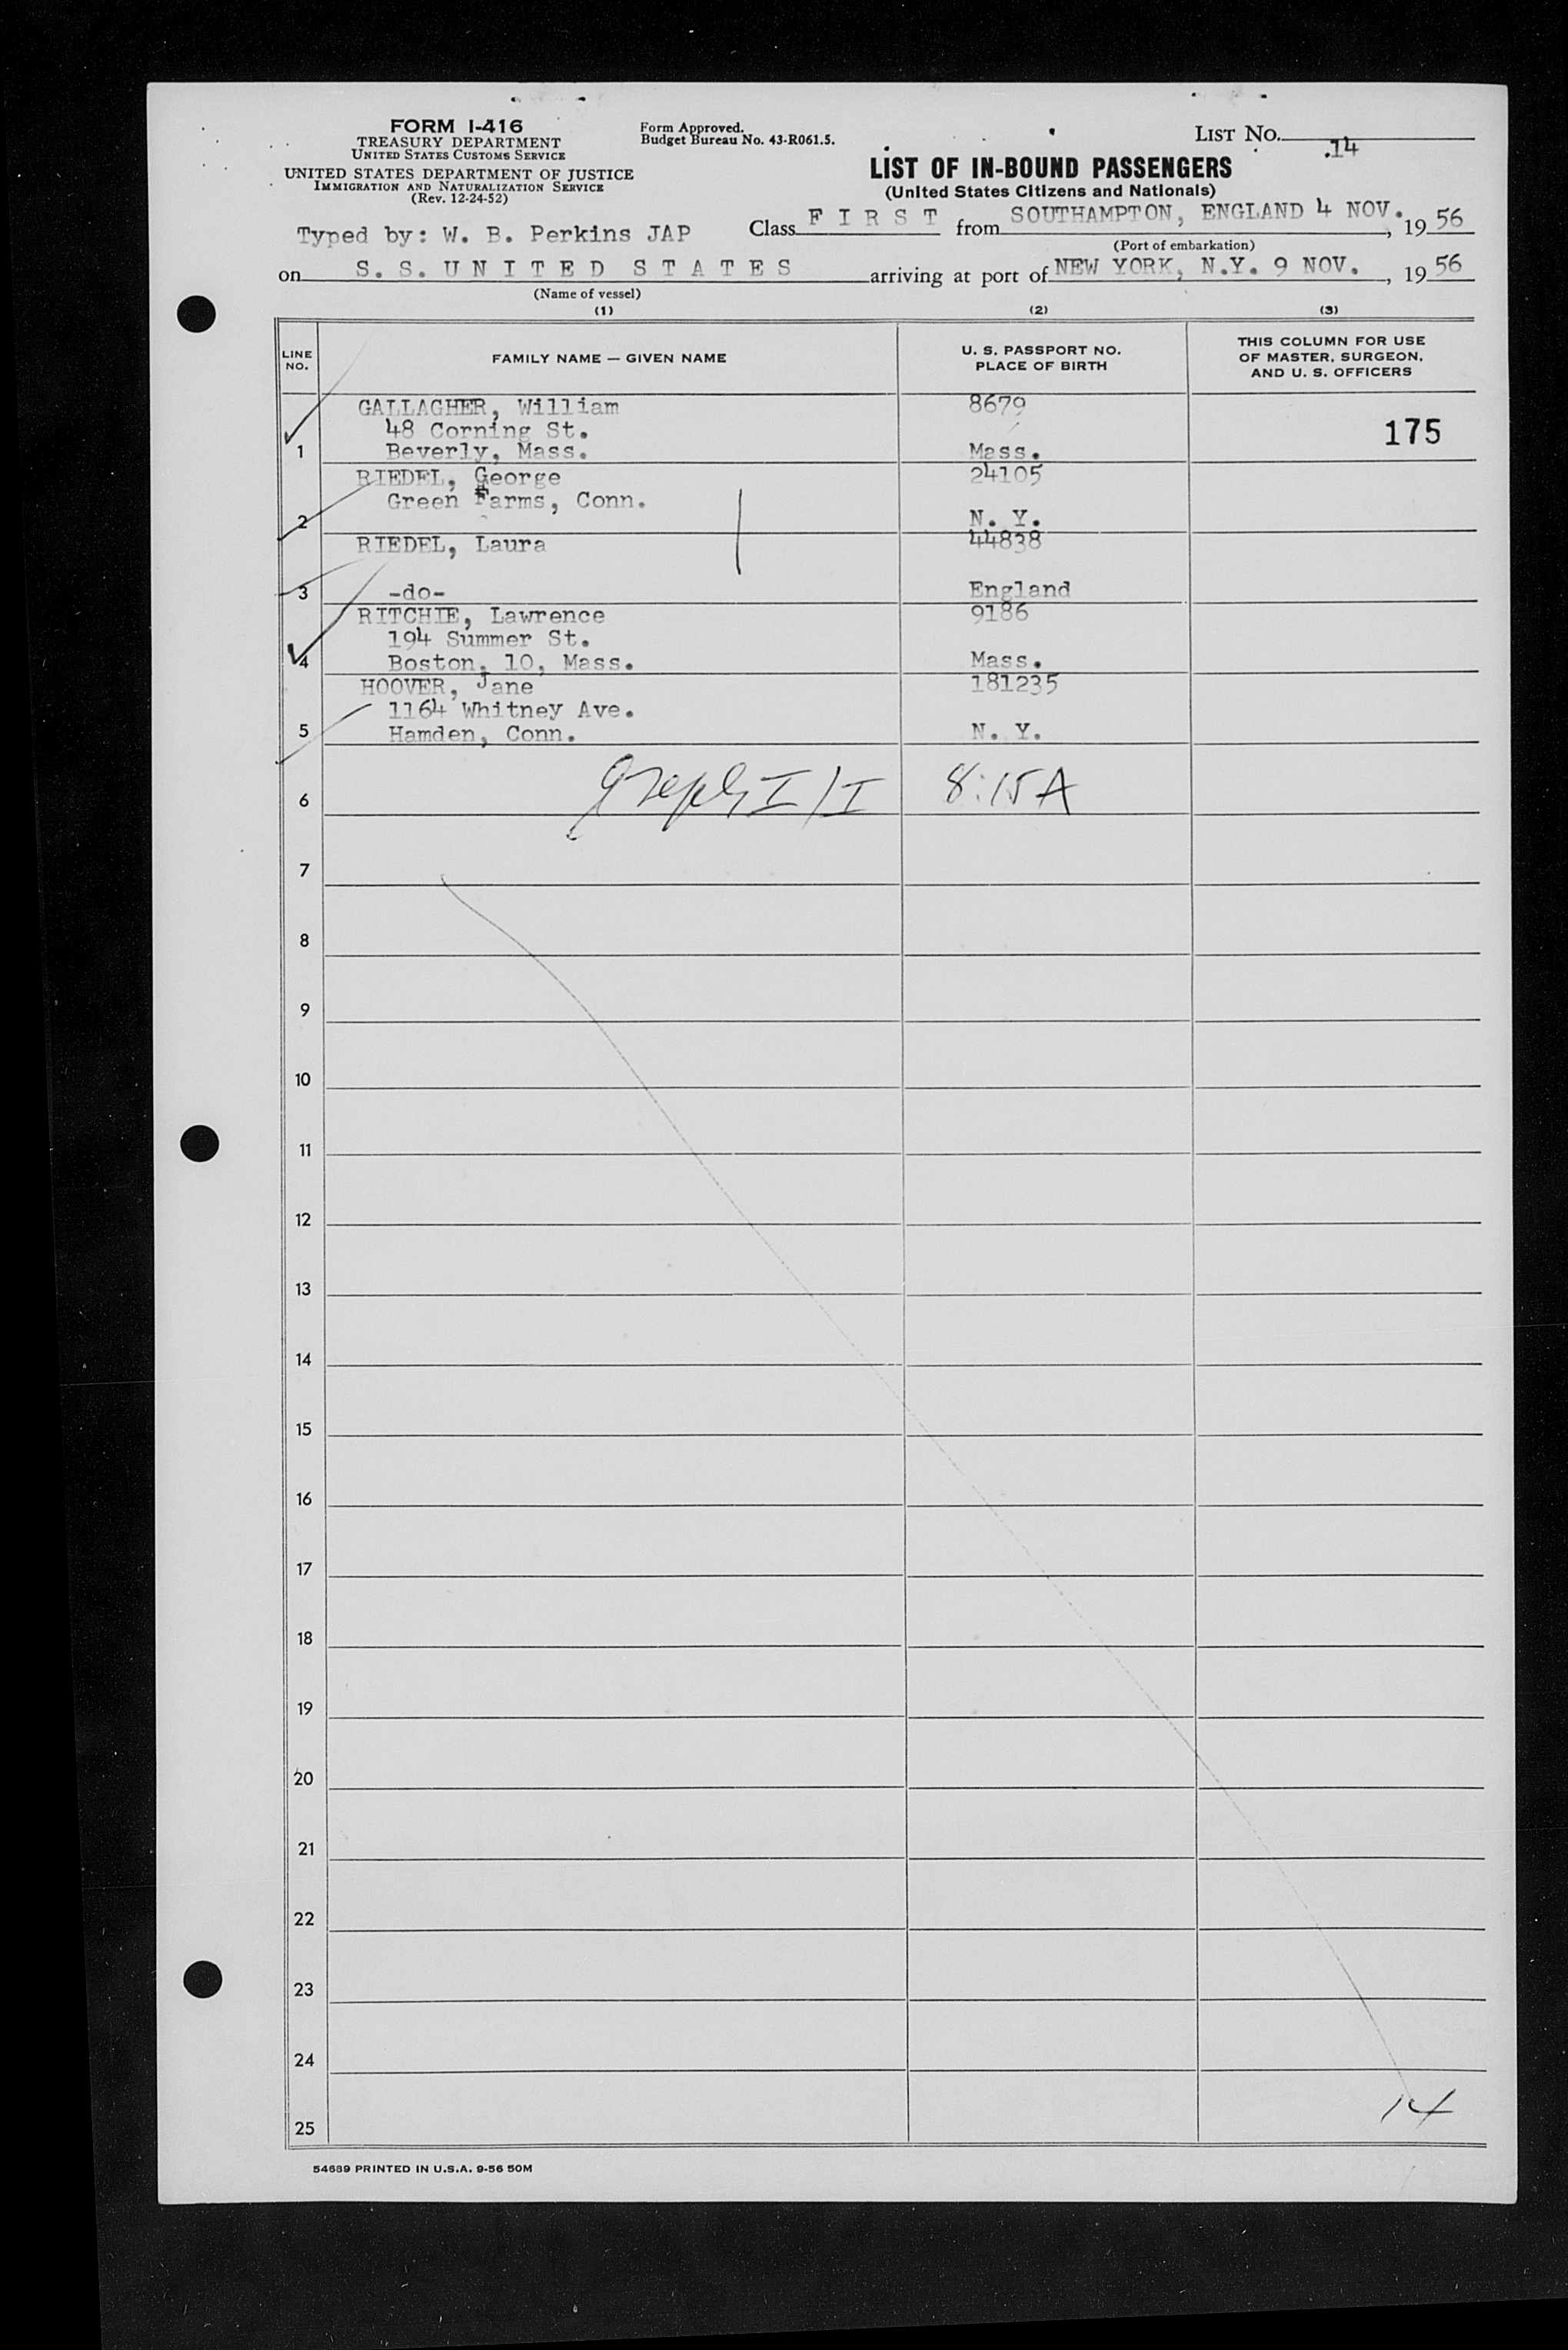 FORM I-416
TREASURY DEPARTMENT
UNITED STATES CUSTOMS SERVICE
UNITED STATES DEPARTMENT OF JUSTICE
IMMIGRATION AND NATURALIZATION SERVICE
(Rev. 12-24-52)
Form Approved.
Budget Bureau No. 43-R061.5.
LIST NO. 14
LIST OF IN-BOUND PASSENGERS
(United States Citizens and Nationals)
Typed by: W. B. Perkins JAP
Class F I R S T from SOUTHAMPTON, ENGLAND 4 NOV., 19 56
(Port of embarkation)
on S. S. U N I T E D S T A T E S arriving at port of NEW YORK, N.Y. 9 NOV. , 19 56
(Name of vessel)
(1) (2) (3)
LINE NO.
FAMILY NAME — GIVEN NAME
U. S. PASSPORT NO.
PLACE OF BIRTH
THIS COLUMN FOR USE
OF MASTER, SURGEON,
AND U. S. OFFICERS
GALLAGHER, William 8679
48 Corning St. 175
1 Beverly, Mass. Mass.
RIEDEL, George 24105
Green Farms, Conn.
2 N. Y.
RIEDEL, Laura 44838
3 -do- England
RITCHIE, Lawrence 9186
194 Summer St.
4 Boston, 10, Mass. Mass.
HOOVER, Jane 181235
1164 Whitney Ave.
5 Hamden, Conn. N. Y.
6 I/I 8:15A
7
8
9
10
11
12
13
14
15
16
17
18
19
20
21
22
23
24
14
25
54689 PRINTED IN U.S.A. 9-56 50M